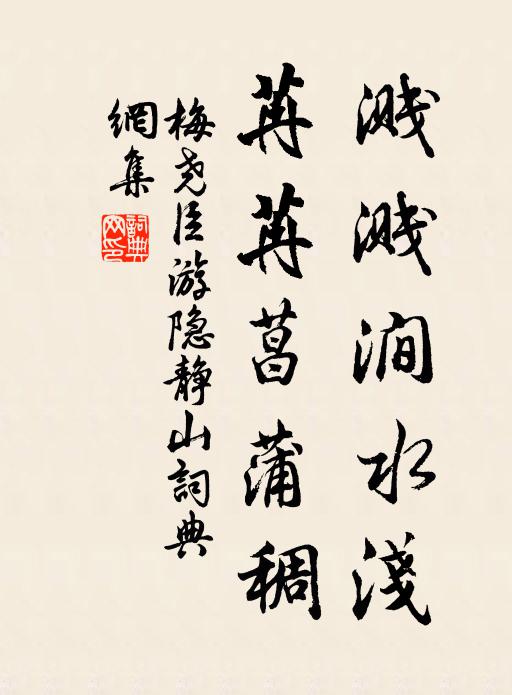 濺濺澗水淺
苒苒菖蒲稠
梅尧臣游隐静山詞典
網集
詞典
網印